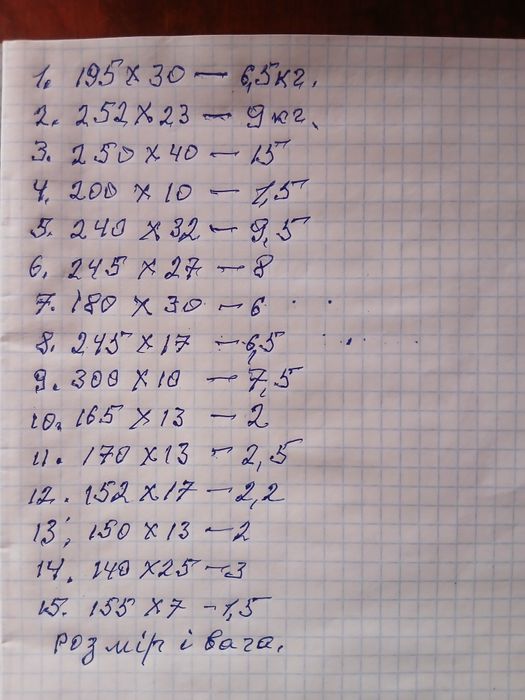 1. 195 x 30 — 6,5 кг.
2. 252 x 23 — 9 кг.
3. 250 x 40 — 15
4. 200 x 10 — 1,5
5. 240 x 32 — 9,5
6. 245 x 27 — 8
7. 180 x 30 — 6
8. 245 x 17 — 6,5
9. 300 x 10 — 7,5
10. 165 x 13 — 2
11. 170 x 13 — 2,5
12. 152 x 17 — 2,2
13; 150 x 13 — 2
14. 140 x 25 — 3
15. 155 x 7 — 1,5
розмір і вага.